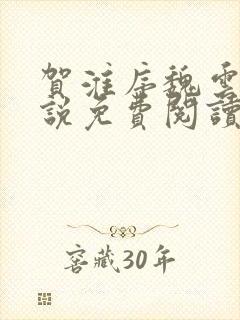 賀淮序魏雲
說免費閱讀
窖藏30年